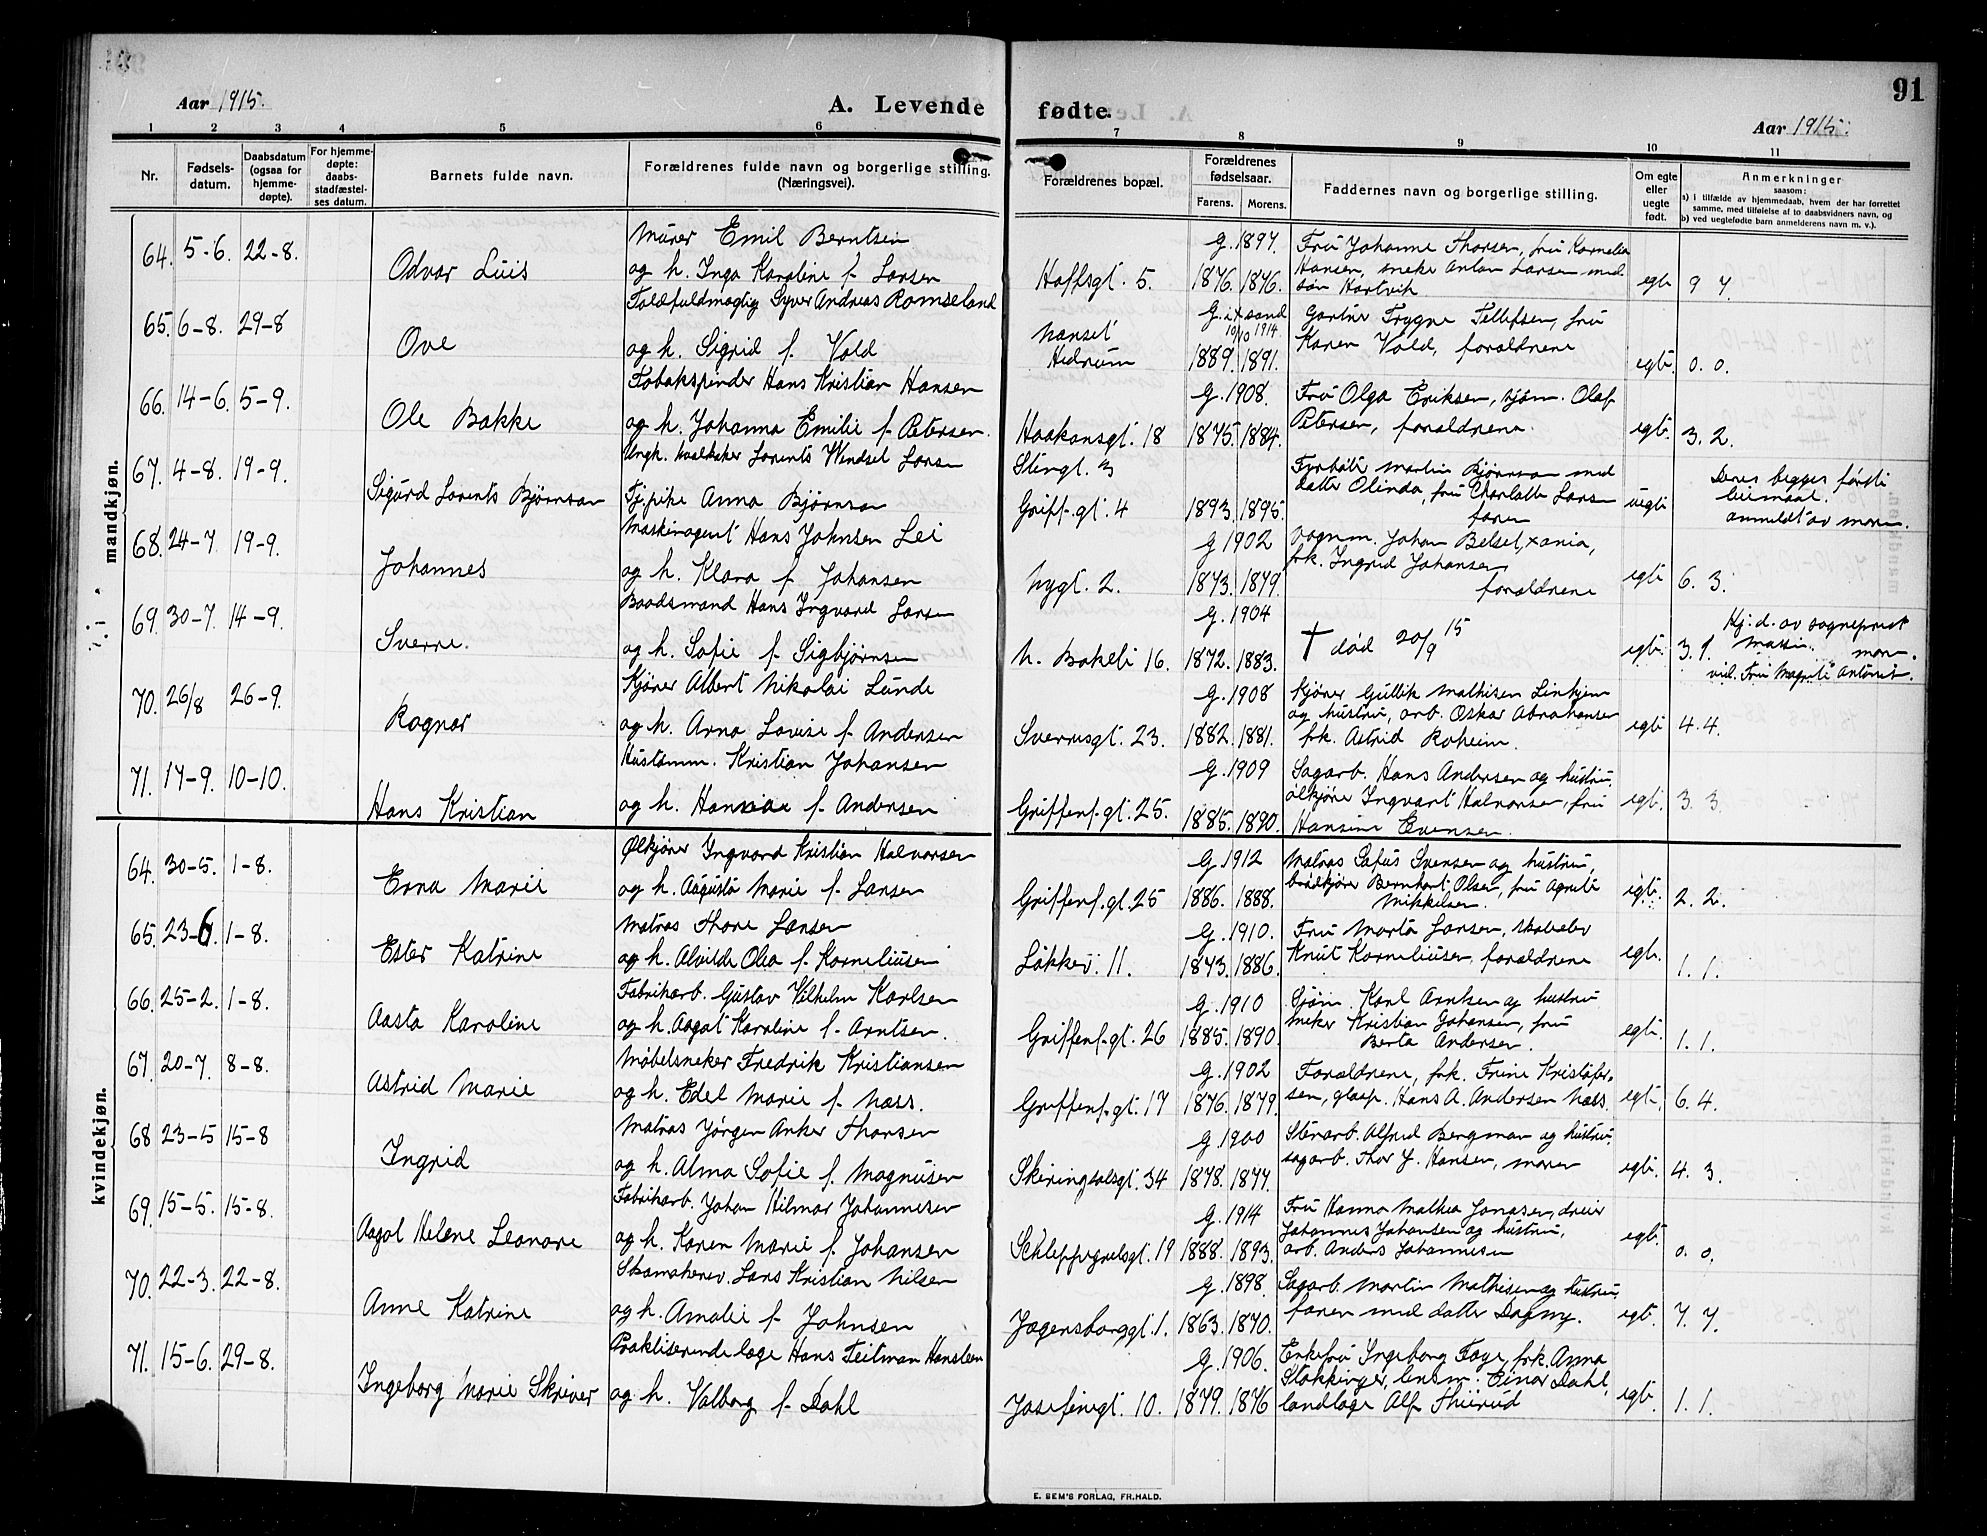 91
Aar 1915.
A. Levende fødte.
Aar 1915.
1 2 3 4 5 6 7 8 9 10 11
Nr.
Fødsels-
datum.
Daabsdatum
(ogsaa for
hjemme-
døpte).
For hjemme-
døpte:
daabs-
stadfæstel-
ses datum.
Barnets fulde navn.
Forældrenes fulde navn og borgerlige stilling.
(Næringsvei).
Forældrenes bopæl.
Forældrenes
fødselsaar.
Farens. Morens.
Faddernes navn og borgerlige stilling.
Om egte
eller
uegte
født.
Anmerkninger
saasom:
a) i tilfælde av hjemmedaab, hvem der har forrettet
samme, med tilføielse af to daabsvidners navn, og
b) ved uegtefødte barn anmelderens navn m. v.).
mandkjøn.
64. 5-6. 22-8. Odvar Luis
Murer Emil Berntsen
og h. Inga Karoline f. Larsen
Hoffsgt. 5.
G. 1897.
1876. 1876.
Fru Johanne Thorsen, fru Kornelia
Hansen, sneker Anton Larsen med
søn Hartvik
egte 9 7.
65. 6-8. 29-8 Ove
Toldfuldmægtig Syver Andreas Romseland
og h. Sigrid f. Vold
Nanset
Hedrum
G. i xsand
10/10 1914
1889. 1891.
Gartner Trygve Tellefsen, fru
Karen Vold, forældrene
egte. 0. 0.
66. 14-6. 5-9. Ole Bakke
Tobakspinder Hans Kristian Hansen
og h. Johanna Emilie f. Petersen.
Haakonsgt. 18
G. 1908.
1875. 1884.
Fru Olga Eriksen, sjøm. Olaf
Petersen, forældrene.
egte. 3. 2.
67. 4-8. 19-9. Sigurd Lorents Bjørnson
Ungk. hvalkoker Lorents Wendsel Larsen
Tj.pike Anna Bjørnson
Stengt. 3
Griff.gt. 4
1893. 1895.
Fyrbøter Martin Bjørnson med
datter Olinda, fru Charlotte Larsen
faren
uegte
Deres begges første
leiermaal.
anmeldt av moren.
68. 24-7 19-9. Johannes
Maskinagent Hans Johnsen Lei
og h. Klara f. Johansen
Nygt. 2.
G 1902
1873. 1879.
Vognm. Johan Belset, xania,
frk. Ingrid Johansen
forældrene
egte 6. 3.
69. 30-7. 14-9. Sverre.
Baadsmand Hans Ingvard Larsen
og h. Sofie f. Sigbjørnsen
N. Bakeli 16.
G. 1904
1872. 1883.
† død 20/9 15
egte. 3. 1.
Hj. d. av sogneprest
70. 26/8 26-9. Ragnar
Kjører Albert Nikolai Lunde
og h. Anna Lovise f. Andersen
Sverresgt. 23.
G. 1908
1882. 1881.
Kjører Gullik Mathisen Linkjem
og hustru, arb. Oskar Abrahamsen
frk. Astrid Roheim.
egte 4. 4.
71. 17-9. 10-10. Hans Kristian
Hustømm. Kristian Johansen
og h. Hanna f. Andersen
Griffenf.gt. 25.
G. 1909
1885. 1890.
Sagarb. Hans Andersen og hustru,
ølkjører Ingvart Halvorsen, fru
Hansine Evensen.
egte. 3. 3.
kvindekjøn.
64. 30-5. 1-8. Erna Marie
Ølkjører Ingvard Kristian Halvorsen
og h. Augusta Marie f. Larsen
Griffenf.gt. 25
G. 1912
1886. 1888.
Matros Sofus Svensen og hustru,
brødkjører Bernhart Olsen, fru Agnete
Mikkelsen.
egte. 2. 2.
65. 23-6. 1-8. Ester Katrine
Matros Thore Larsen
og h. Alvilde Olea f. Korneliussen
Løkkev. 11.
G. 1910.
1843. 1886.
Fru Marta Larsen, skoleelev
Knut Korneliussen, forældrene
egte. 1. 1.
66. 25-2. 1-8. Aasta Karoline
Fabrikarb. Gustav Vilhelm Karlsen
og h. Aagot Karoline f. Arntsen.
Griffenf.gt. 26
G. 1910
1885. 1890.
Sjøm. Karl Arntsen og hustru
sneker Kristian Johansen, fru
Berta Andersen.
egte. 1. 1.
67. 20-7. 8-8. Astrid Marie
Møbelsneker Fredrik Kristiansen
og h. Edel Marie f. Næss.
Griffenf.gt. 17
G. 1902
1876. 1879.
Forældrene, frk. Trine Kristofer-
sen, glasp. Hans A. Andersen Næss.
egte. 6. 4.
68 23-5 15-8 Ingrid
Matros Jørgen Anker Thorsen
og h. Alma Sofie f. Magnusen
Skiringsalsgt. 34
G. 1900
1878. 1877.
Stenarb. Alfred Bergman og hustru,
sagarb. Thor J. Hansen, moren
egte. 4. 3.
69. 15-5. 15-8. Aagot Helene Leonore
Fabrikarb. Johan Hilmar Johannesen
og h. Karen Marie f. Johansen
Schleppegrelsgt. 19
G. 1914
1888. 1893.
Fru Hanna Mathea Jonasen, dreier
Johannes Johansen og hustru,
arb. Anders Johannesen
egte. 0. 0.
70. 22-3. 22-8. Anne Katrine
Skomakersv. Lars Kristian Nilsen
og h. Amalie f. Johnsen
Jegersborggt. 1.
G. 1898.
1863. 1870.
Sagarb. Martin Mathisen og hustru,
faren med datter Dagny.
egte. 7. 7.
71. 15-6. 29-8. Ingeborg Marie Skriver
Praktiserende læge Hans Teilman Hansteen
og h. Valborg f. Dahl
Josefinegt. 10.
G. 1906.
1879. 1876
Enkefru Ingeborg Faye, frk. Anna
Stokkinger, lensm. Einar Dahl,
landlæge Alf Thurud
egte. 1. 1.
E. SEM'S FORLAG, FR.HALD.